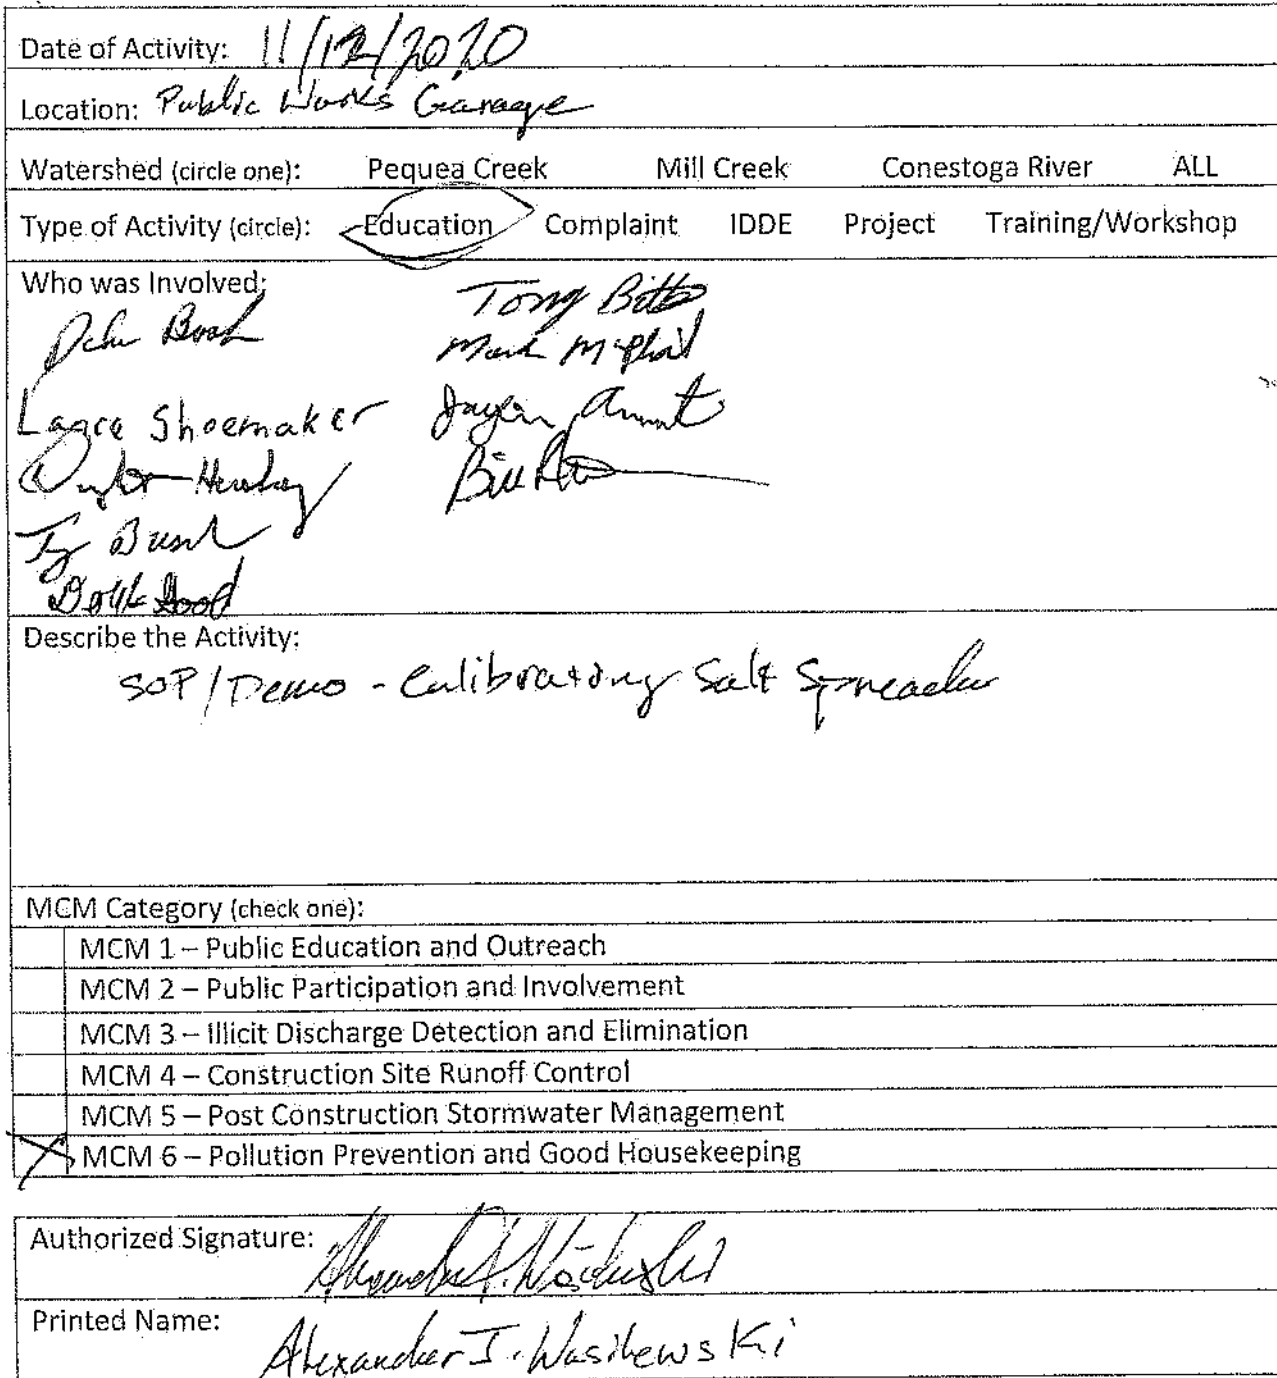 Date of Activity: 11/12/2020
Location: Public Works Garage
Watershed (circle one): Pequea Creek Mill Creek Conestoga River ALL
Type of Activity (circle): Education Complaint IDDE Project Training/Workshop
Who was Involved:
Tony
Mark
Shoemaker
Bill
Describe the Activity:
SOP/Demo - Calibrating Salt Spreader
MCM Category (check one):
MCM 1 – Public Education and Outreach
MCM 2 – Public Participation and Involvement
MCM 3 – Illicit Discharge Detection and Elimination
MCM 4 – Construction Site Runoff Control
MCM 5 – Post Construction Stormwater Management
X MCM 6 – Pollution Prevention and Good Housekeeping
Authorized Signature:
Printed Name:
Alexander J. Wasilewski